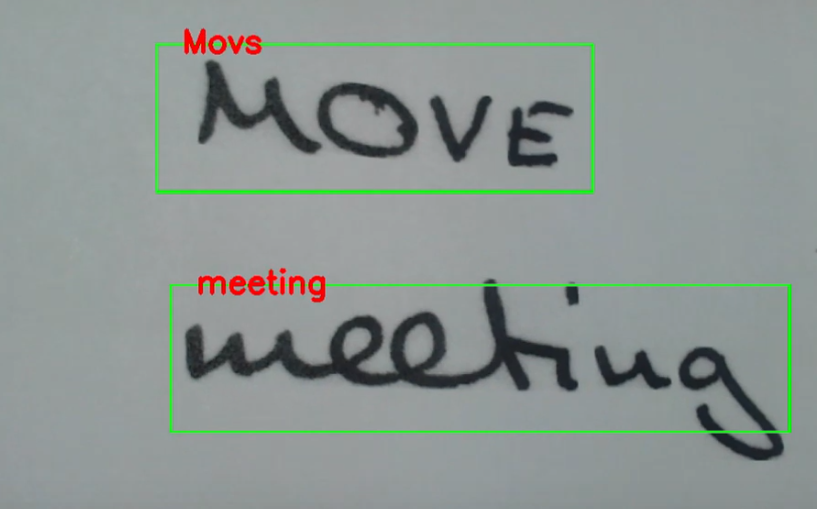 Movs
MOVE
meeting
meeting